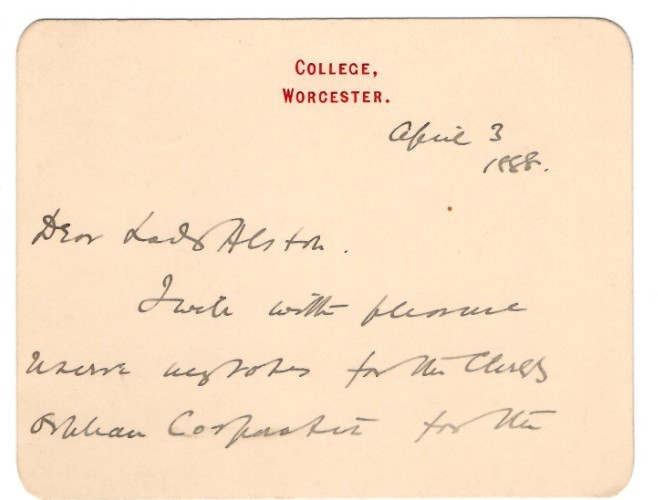 COLLEGE,
WORCESTER.
April 3
1888.
Dear Lady Alston.
I will with pleasure
reserve my votes for the Clergy
Orphan Corporation for the